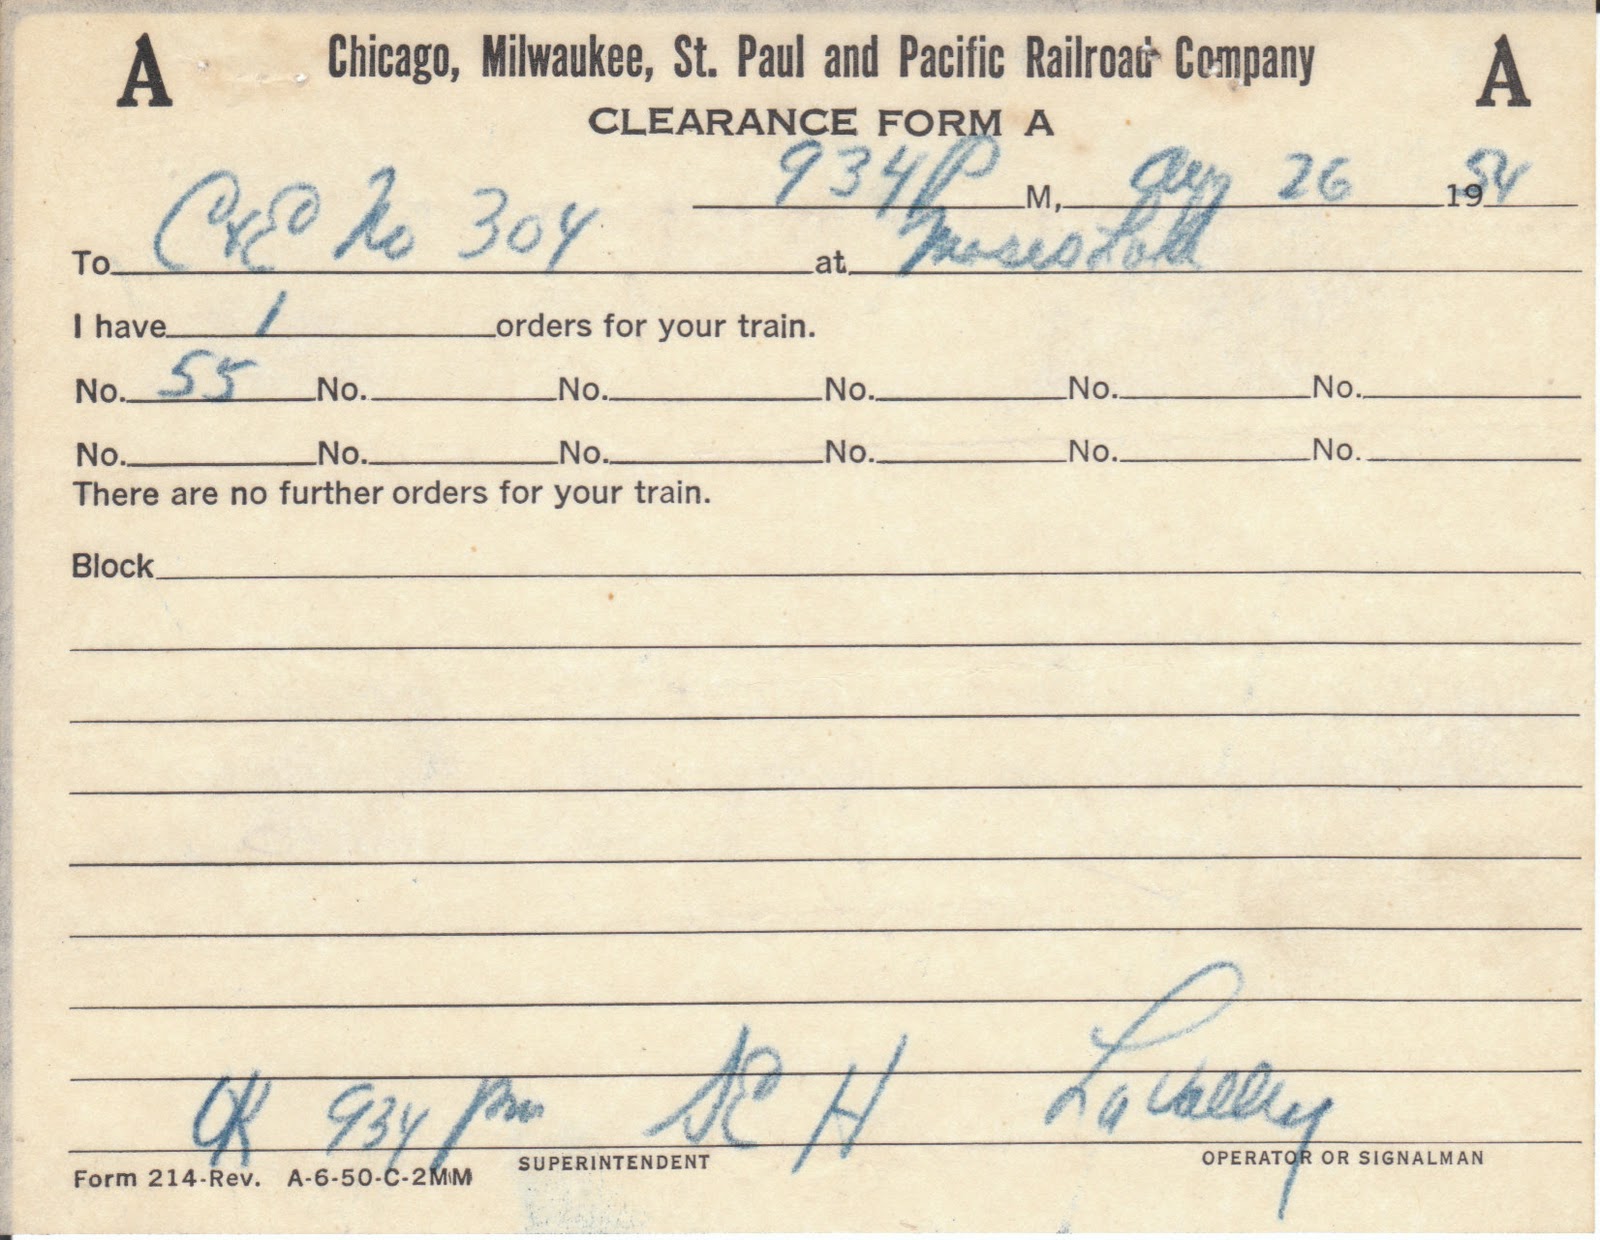 A Chicago, Milwaukee, St. Paul and Pacific Railroad Company A
CLEARANCE FORM A
934 P M, Aug 26 1954
To C&E No 304 at Moses Lake
I have 1 orders for your train.
No. 55 No. No. No. No. No.
No. No. No. No. No. No.
There are no further orders for your train.
Block
OK 934 pm H LaValley
SUPERINTENDENT OPERATOR OR SIGNALMAN
Form 214-Rev. A-6-50-C-2MM